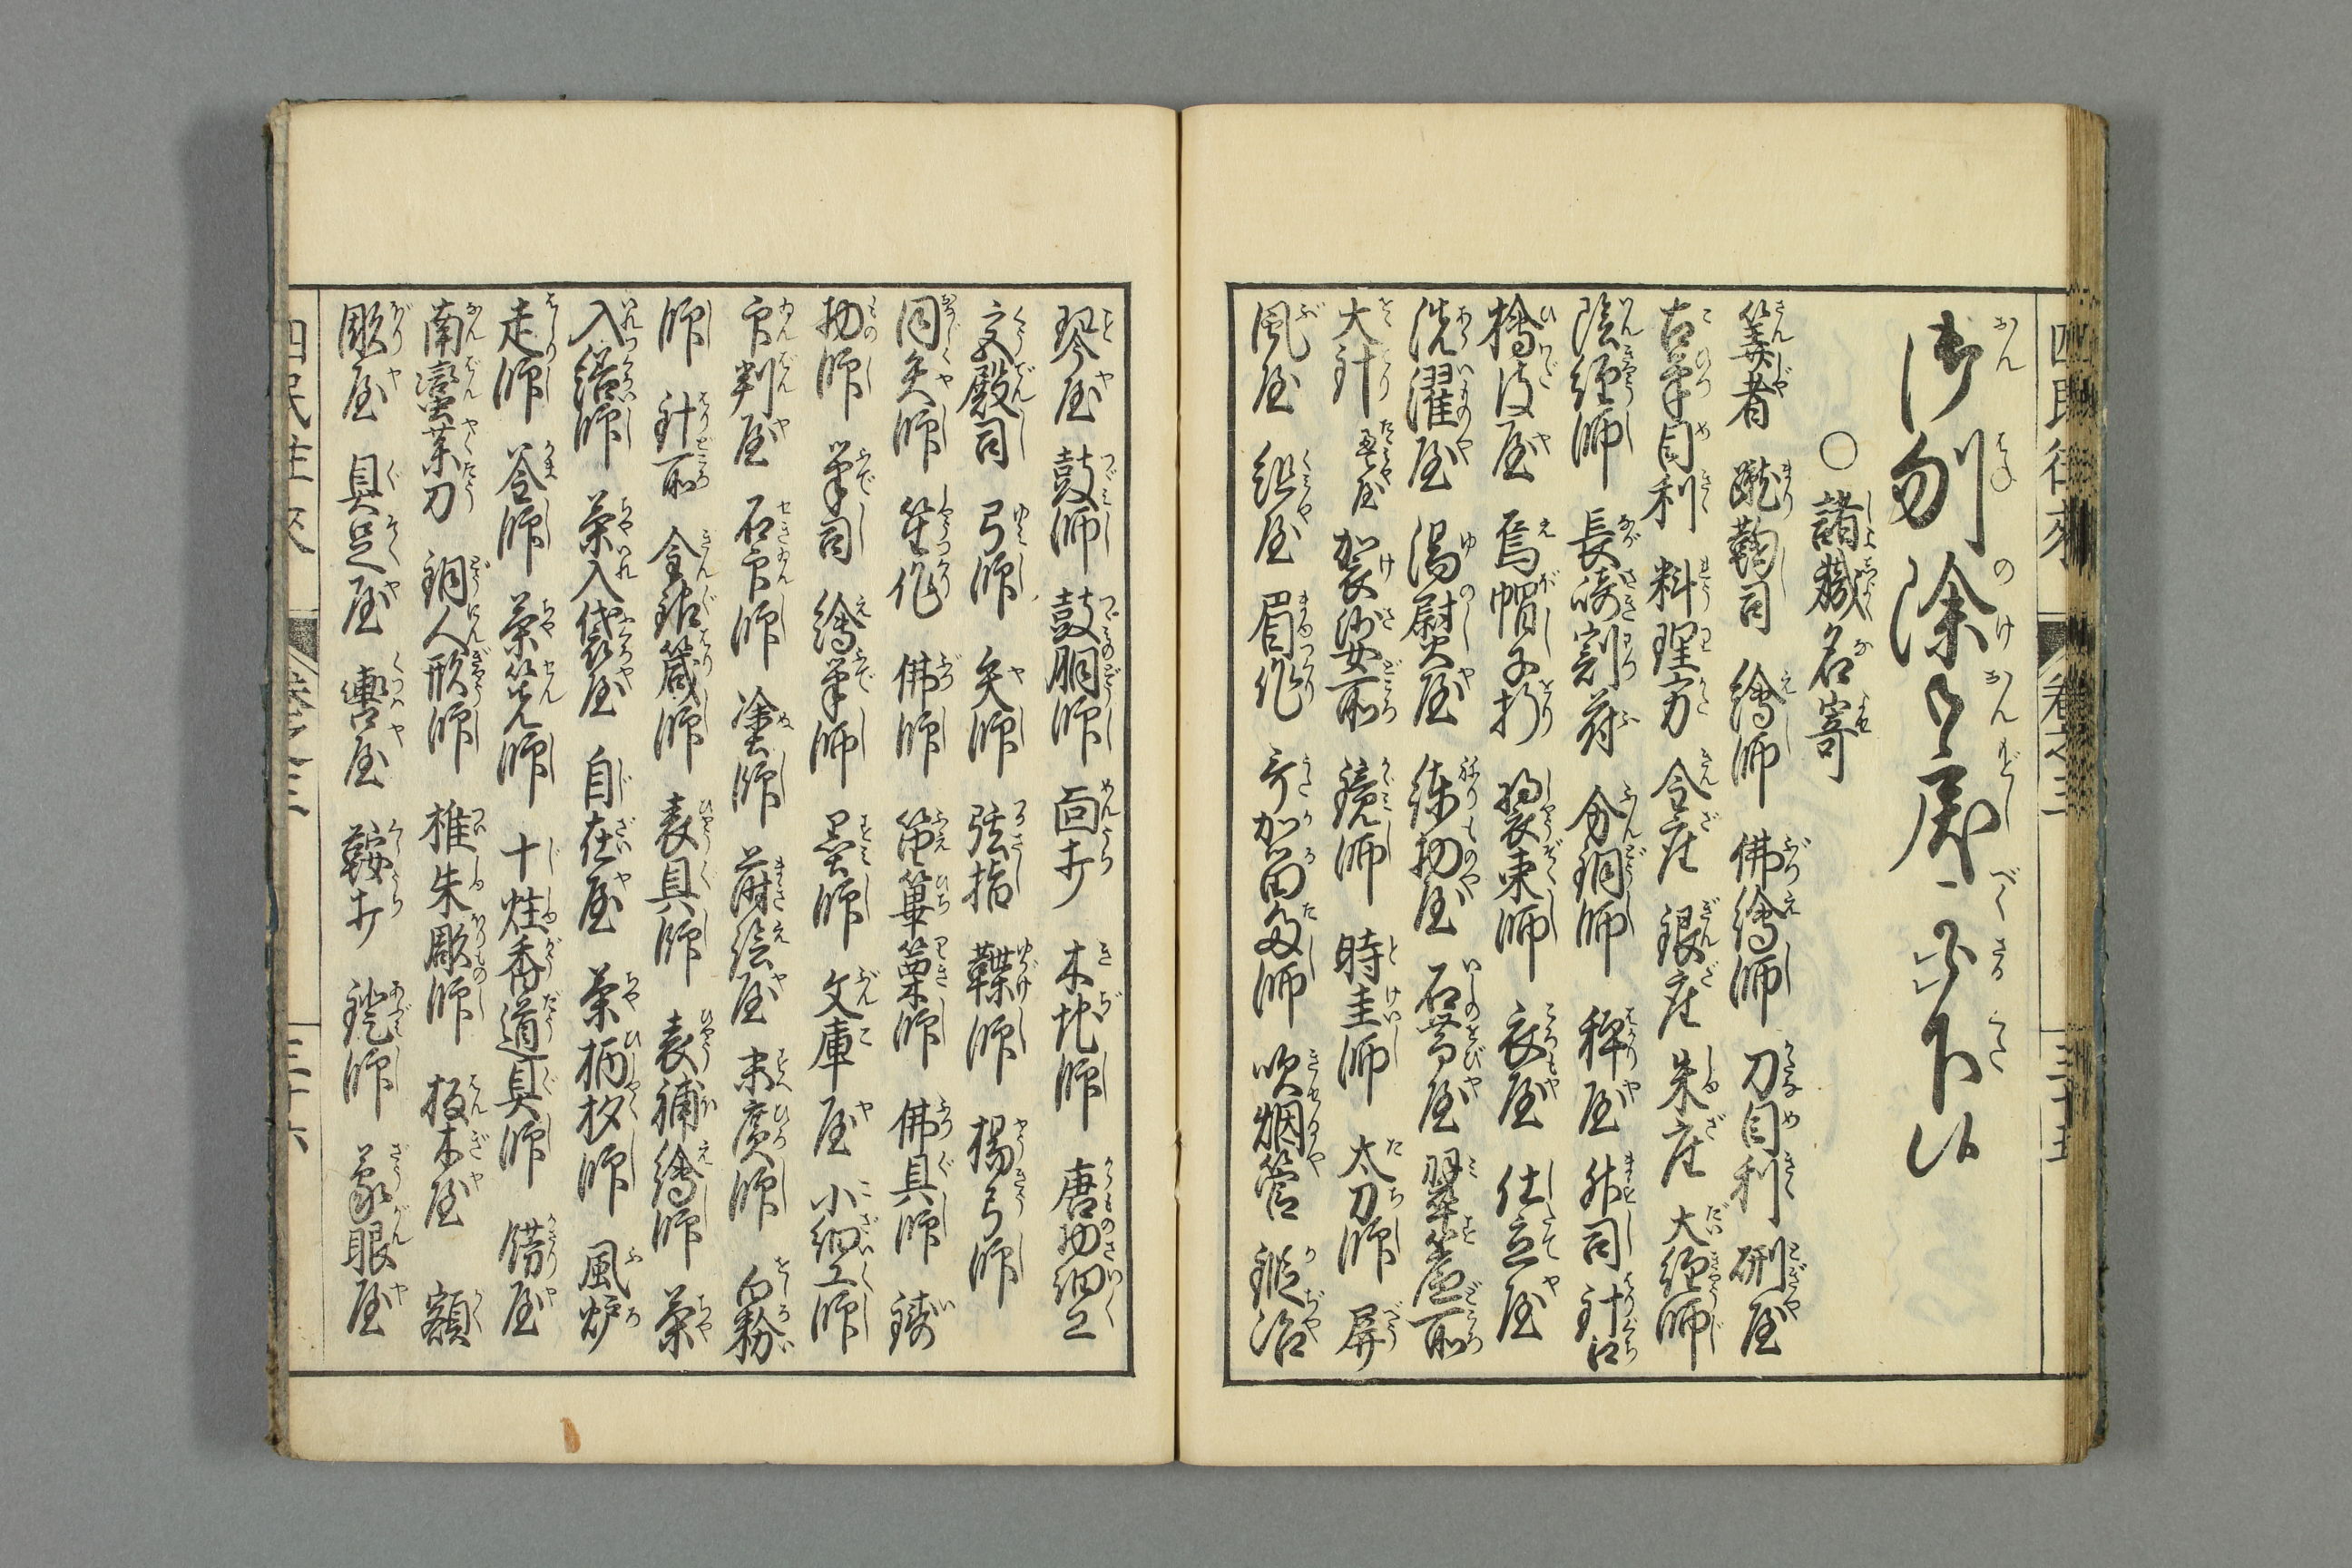 四民往来 巻之三 三十五
御刎除御戻可被下候
○諸職名寄
筭者 蹴鞠司 繪師 佛繪師 刀目利 研屋
古筆目利 料理方 金座 銀座 朱座 大経師
陰経師 長崎割符 分銅師 秤屋 舛司 針口
檜皮屋 烏帽子折 装束師 衣屋 仕立屋
洗濯屋 湯熨屋 練物屋 石帯屋 翠簾所
大針 畳屋 袈裟所 鏡師 時圭師 太刀師 屏
風屋 組屋 眉作 哥加留多師 吹烟管 鍛冶
琴屋 鼓師 鼓胴師 面打 木地師 唐物細工
文殿司 弓師 矢師 弦指 鞢師 楊弓師
同矢師 笙作 佛師 笛篳篥師 佛具師 鋳
物師 筆司 繪筆師 墨師 文庫屋 小細工師
印判屋 石印師 塗師 蒔絵屋 末廣師 白粉
師 針所 金鉐箴師 表具師 表補繪師 茶
入繕師 茶入袋屋 自在屋 茶柄杓師 風炉
走師 釜師 茶筅師 十炷香道具師 錺屋
南蛮薬刀 銅人形師 椎朱彫師 板木屋 額
彫屋 具足屋 轡屋 鞍打 鐙師 象眼屋
四民往来 巻之三 三十六